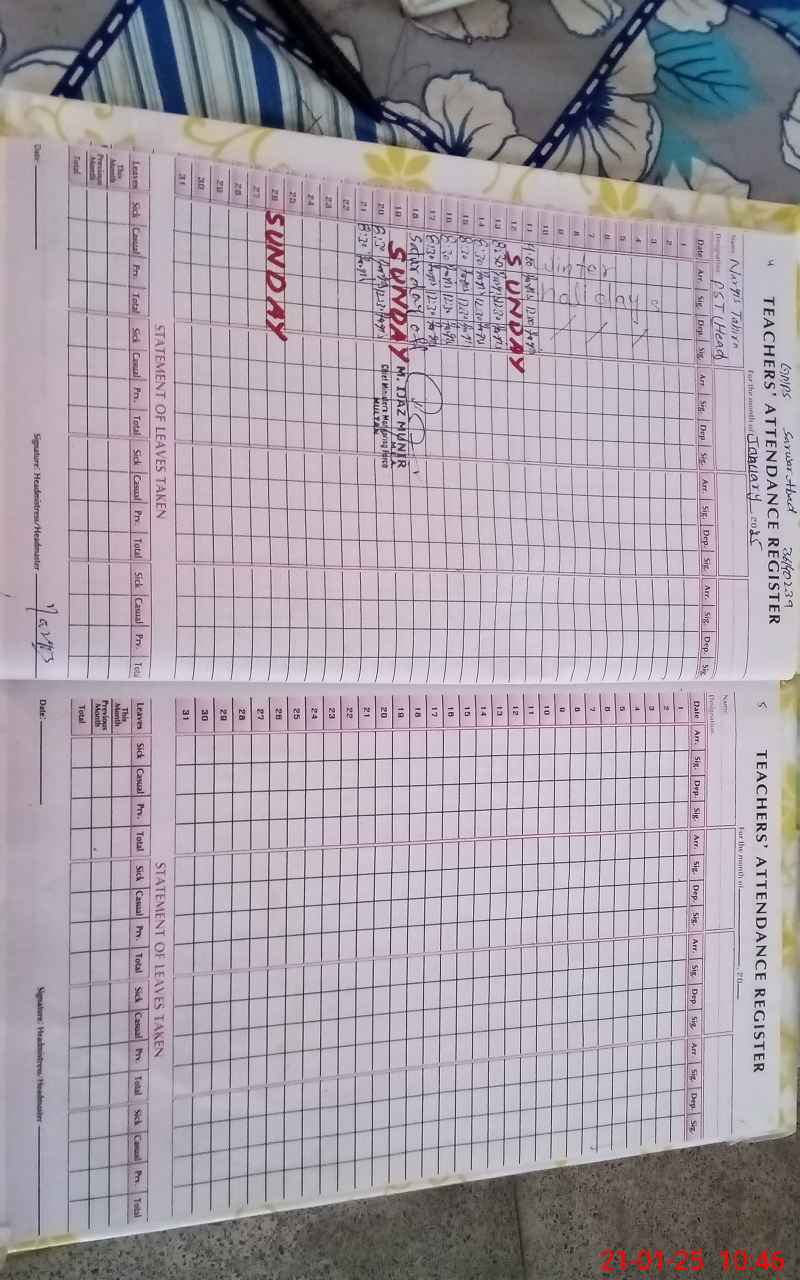 4
GMPS Sarwar Abad 36190239
TEACHERS' ATTENDANCE REGISTER
For the month of January 2025
Name Nargis Tahira
Designation PST (Head)
Date Arr. Sig. Dep. Sig. Arr. Sig. Dep. Sig. Arr. Sig. Dep. Sig. Arr. Sig. Dep. Sig.
1
2
3
4
5
6
7
8
9
10
11
12 SUNDAY
13 8:30 Nargis 12:30 Nargis
14 8:30 Nargis 12:30 Nargis
15 8:30 Nargis 12:30 Nargis
16 8:30 Nargis 12:30 Nargis
17 8:30 Nargis 12:30 Nargis
18 Saturday off
19 SUNDAY
M. IJAZ MUNIR
M.E.A
Chief Ministers Monitoring Force
MULTAN
20 8:30 Nargis 12:30 Nargis
21 8:30 Nargis
22
23
24
25
26 SUNDAY
27
28
29
30
31
STATEMENT OF LEAVES TAKEN
Leaves Sick Casual Prv. Total Sick Casual Prv. Total Sick Casual Prv. Total Sick Casual Prv. Total
This Month
Previous Month
Total
Date: Signature: Headmistress/Headmaster Nargis
5
TEACHERS' ATTENDANCE REGISTER
For the month of 20
Name
Designation
Date Arr. Sig. Dep. Sig. Arr. Sig. Dep. Sig. Arr. Sig. Dep. Sig. Arr. Sig. Dep. Sig.
1
2
3
4
5
6
7
8
9
10
11
12
13
14
15
16
17
18
19
20
21
22
23
24
25
26
27
28
29
30
31
STATEMENT OF LEAVES TAKEN
Leaves Sick Casual Prv. Total Sick Casual Prv. Total Sick Casual Prv. Total Sick Casual Prv. Total
This Month
Previous Month
Total
Date: Signature: Headmistress/Headmaster
21-01-25 10:46